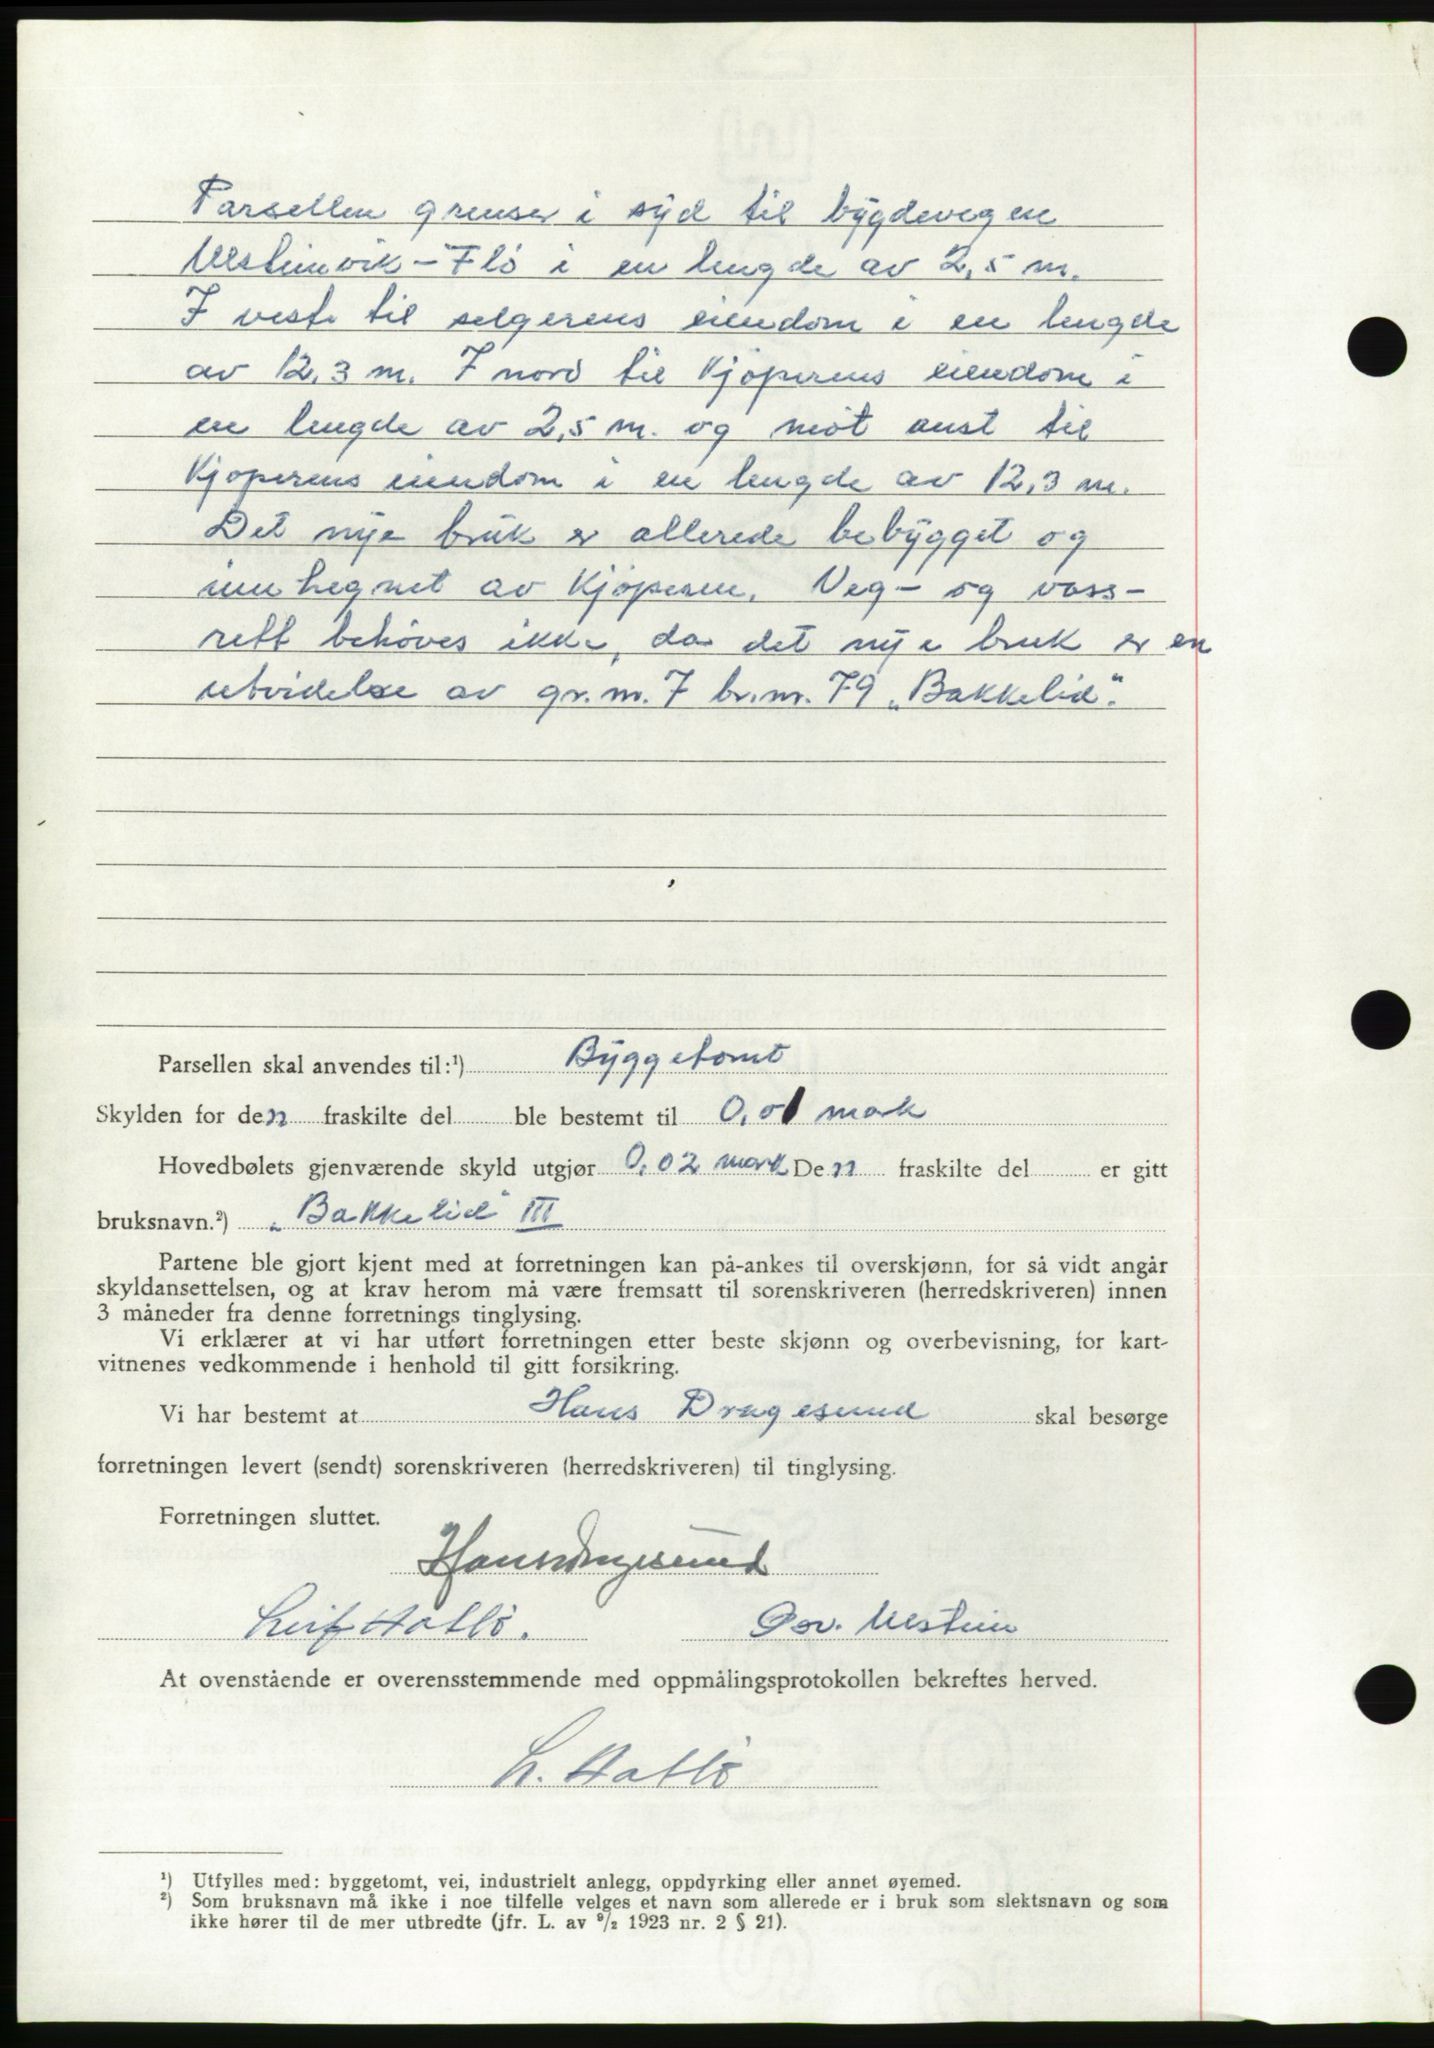 Parsellen grenser i syd til bygdevegen
Ulsteinvik – Flø i en lengde av 2,5 m.
I vest til selgerens eiendom i en lengde
av 12,3 m. I nord til kjøperens eiendom i
en lengde av 2,5 m. og mot aust til
kjøperens eiendom i en lengde av 12,3 m.
Det nye bruk er allerede bebygget og
innhegnet av kjøperen. Veg – og vass-
rett behøves ikke, da det nye bruk er en
utvidelse av gr. nr. 7 br. nr. 79 „Bakkelid".
Parsellen skal anvendes til:¹) Byggetomt
Skylden for den fraskilte del ble bestemt til 0,01 mark
Hovedbølets gjenværende skyld utgjør 0,02 mark Den fraskilte del er gitt
bruksnavn.²) „Bakkelid" III
Partene ble gjort kjent med at forretningen kan på-ankes til overskjønn, for så vidt angår
skyldansettelsen, og at krav herom må være fremsatt til sorenskriveren (herredskriveren) innen
3 måneder fra denne forretnings tinglysing.
Vi erklærer at vi har utført forretningen etter beste skjønn og overbevisning, for kart-
vitnenes vedkommende i henhold til gitt forsikring.
Vi har bestemt at Hans Dragesund skal besørge
forretningen levert (sendt) sorenskriveren (herredskriveren) til tinglysing.
Forretningen sluttet.
Hans Dragesund
Leif Hatlø. Osv. Ulstein
At ovenstående er overensstemmende med oppmålingsprotokollen bekreftes herved.
L. Hatlø
¹) Utfylles med: byggetomt, vei, industrielt anlegg, oppdyrking eller annet øyemed.
²) Som bruksnavn må ikke i noe tilfelle velges et navn som allerede er i bruk som slektsnavn og som
ikke hører til de mer utbredte (jfr. L. av ⁹/₂ 1923 nr. 2 § 21).